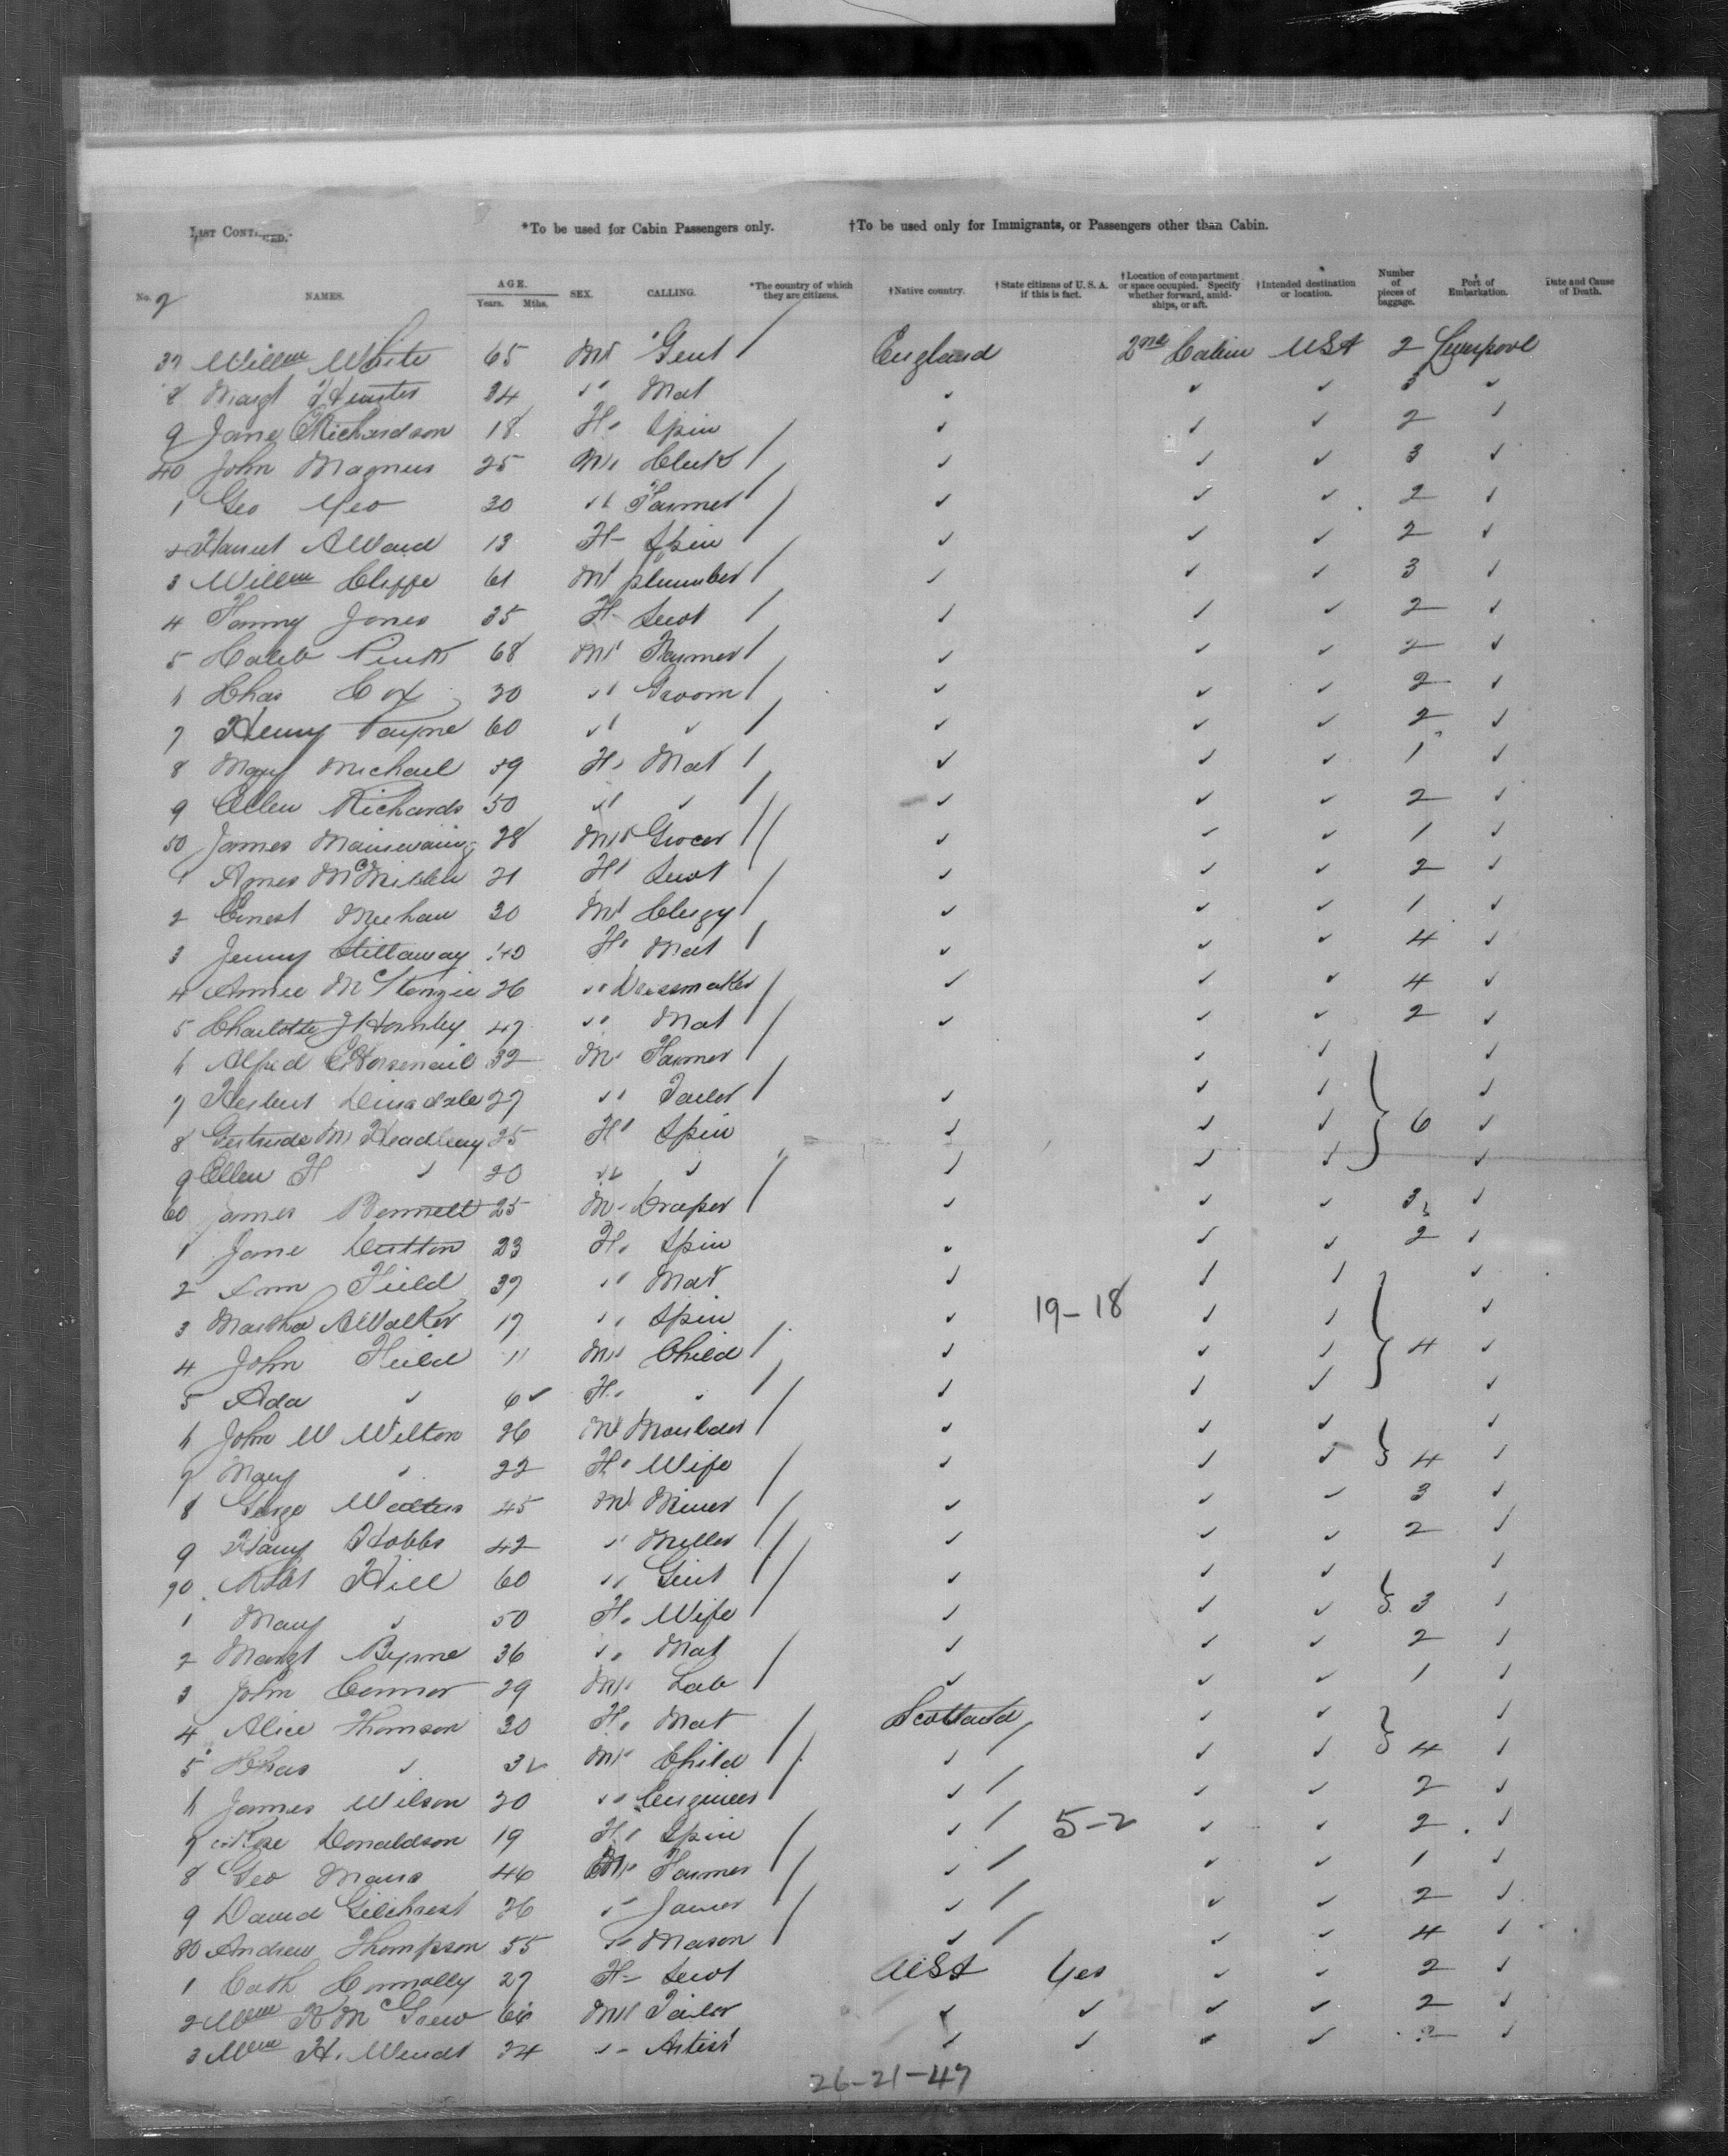 LIST CONTINUED. *To be used for Cabin Passengers only. †To be used only for Immigrants, or Passengers other than Cabin.
No. NAMES. AGE. Years. Mths. SEX. CALLING. *The country of which they are citizens. †Native country. †State citizens of U.S.A. if this is fact. †Location of compartment or space occupied. Specify whether forward, amidships, or aft. †Intended destination or location. Number of pieces of baggage. Port of Embarkation. Date and Cause of Death.
2
37 Willm White 65 M Gent / England 2nd Cabin USA 2 Liverpool
8 Margt Hunter 34 " Mat ✓ ✓ ✓ 3 ✓
9 Jane Richardson 18 F Spin ✓ ✓ ✓ 2 ✓
40 John Magnus 25 M Clerk / ✓ ✓ ✓ 3 ✓
1 Geo Yeo 30 " Farmer / ✓ ✓ ✓ 2 ✓
2 Harriet A Ward 13 F Spin / ✓ ✓ ✓ 2 ✓
3 Willm Cliffe 61 M plumber / ✓ ✓ ✓ 3 ✓
4 Fanny Jones 35 F Servt / ✓ ✓ ✓ 2 ✓
5 Caleb 68 M Farmer / ✓ ✓ ✓ 2 ✓
6 Chas Cox 30 " Groom / ✓ ✓ ✓ 2 ✓
7 Henry Payne 60 " ✓ / ✓ ✓ ✓ 2 ✓
8 Mary Michael 59 F Mat / ✓ ✓ ✓ 1 ✓
9 Ellen Richards 50 " ✓ / ✓ ✓ ✓ 2 ✓
50 James Mainwaring 28 M Grocer / ✓ ✓ ✓ 1 ✓
1 Agnes McMillen 21 F Servt / ✓ ✓ 2 ✓
2 Ernest Meehan 30 M Clergy / ✓ ✓ ✓ 1 ✓
3 Jenny Stillaway 40 F Mat / ✓ ✓ ✓ 4 ✓
4 Annie McKenzie 26 " Dressmaker / ✓ ✓ ✓ 4 ✓
5 Charlotte J Hornby 47 " Mat / ✓ ✓ ✓ 2 ✓
6 Alfred C Horsenail 32 M Farmer / ✓ ✓ ✓
7 Herbert Dinsdale 27 " Tailor / ✓ ✓ ✓ ✓
8 Gertrude M Headley 25 F Spin ✓ ✓ ✓ 6 ✓
9 Ellen H ✓ 20 " ✓ ✓ ✓ ✓ ✓
60 James Bennett 25 M Draper / ✓ ✓ ✓ 3 ✓
1 Jane Dutton 23 F Spin ✓ ✓ ✓ 2 ✓
2 Ann Field 37 " Mat ✓ ✓ ✓ ✓
3 Martha A Walker 17 " Spin ✓ 19-18 ✓ ✓ ✓
4 John Field 11 M Child / ✓ ✓ ✓ 4 ✓
5 Ada ✓ 6 ✓ F ✓ / ✓ ✓ ✓ ✓
6 John W Wilton 26 M Moulder / ✓ ✓ ✓ ✓
7 Mary ✓ 22 F Wife ✓ ✓ ✓ 4 ✓
8 George Walters 45 M Miner / ✓ ✓ ✓ 3 ✓
9 Harry Hobbs 42 " Miller / ✓ ✓ ✓ 2 ✓
70 Robt Hill 60 " Gent / ✓ ✓ ✓ ✓
1 Mary ✓ 50 F Wife / ✓ ✓ ✓ 3 ✓
2 Margt Byrne 36 " Mat ✓ ✓ ✓ 2 ✓
3 John Connor 29 M Lab / ✓ ✓ ✓ 1 ✓
4 Alice Thomson 30 F Mat / Scotland ✓ ✓ ✓
5 Chas ✓ 3 ✓ M Child / ✓ / ✓ ✓ 4 ✓
6 James Wilson 20 " Engineer ✓ / ✓ ✓ 2 ✓
7 Donaldson 19 F Spin / ✓ / 5-2 ✓ ✓ 2 ✓
8 Geo 46 M Farmer / ✓ / ✓ ✓ 1 ✓
9 David Gilchrest 26 " Joiner / ✓ / ✓ ✓ 2 ✓
80 Andrew Thompson 55 " Mason / ✓ / ✓ ✓ 4 ✓
1 Cath Connolly 27 F Servt USA Yes ✓ ✓ 2 ✓
2 Wm R McGrew M Tailor ✓ ✓ ✓ ✓ 2 ✓
3 Wm H. Wendt 24 " Artist ✓ ✓ ✓ ✓ 2 ✓
26-21-47